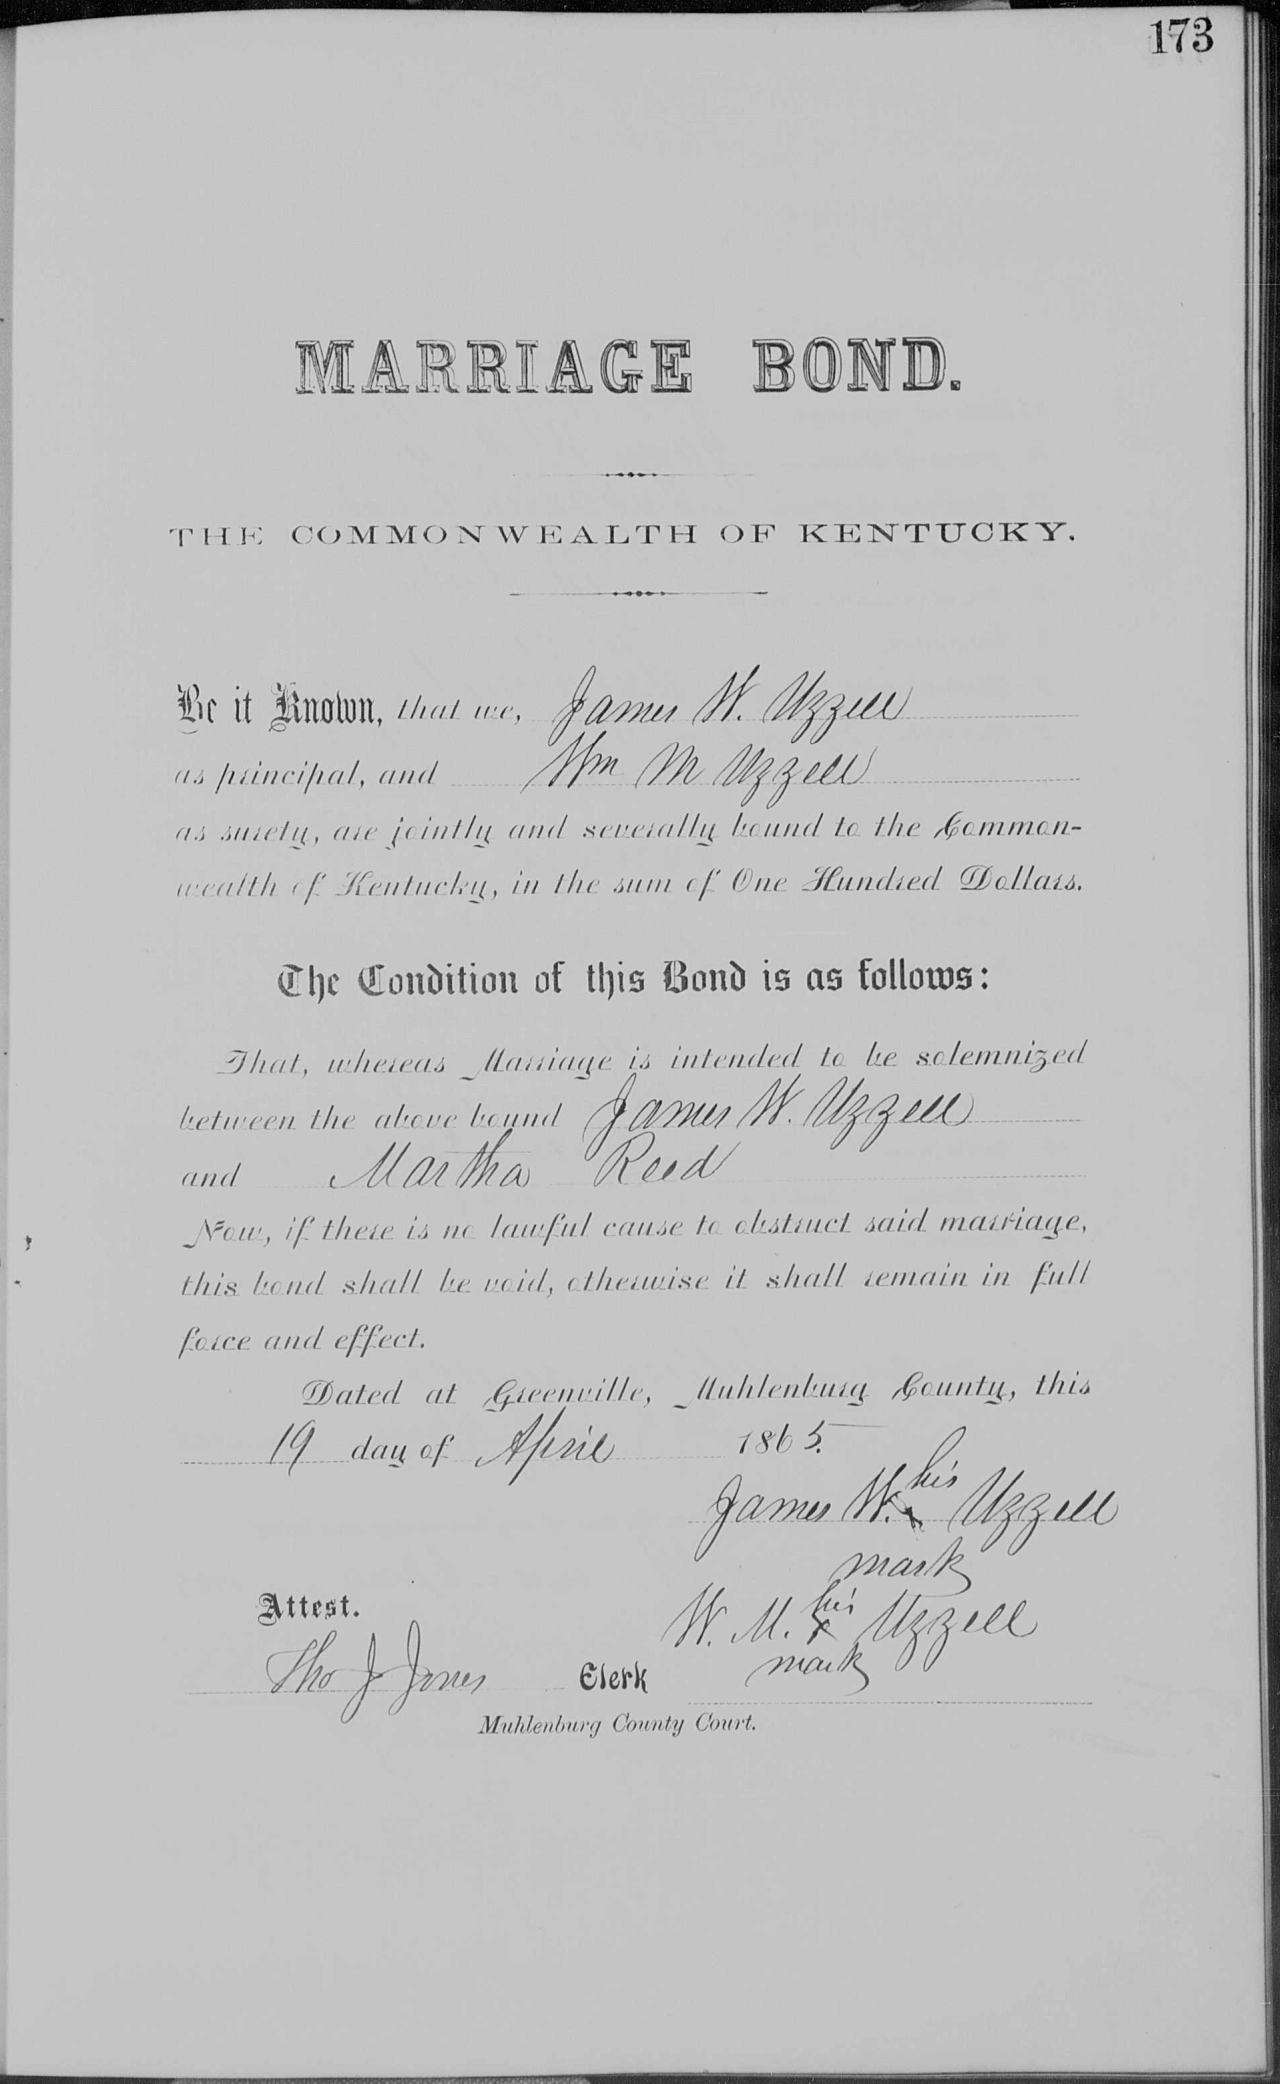 173
MARRIAGE BOND.
THE COMMONWEALTH OF KENTUCKY.
Be it Known, that we, James W. Uzzell
as principal, and Wm M Uzzell
as surety, are jointly and severally bound to the Common-
wealth of Kentucky, in the sum of One Hundred Dollars.
The Condition of this Bond is as follows:
That, whereas Marriage is intended to be solemnized
between the above bound James W. Uzzell
and Martha Reed
Now, if there is no lawful cause to obstruct said marriage,
this bond shall be void, otherwise it shall remain in full
force and effect.
Dated at Greenville, Muhlenburg County, this
19 day of April 1865.
his
James W. x Uzzell
mark
Attest.
his
W. M. x Uzzell
mark
Tho J Jones Clerk
Muhlenburg County Court.